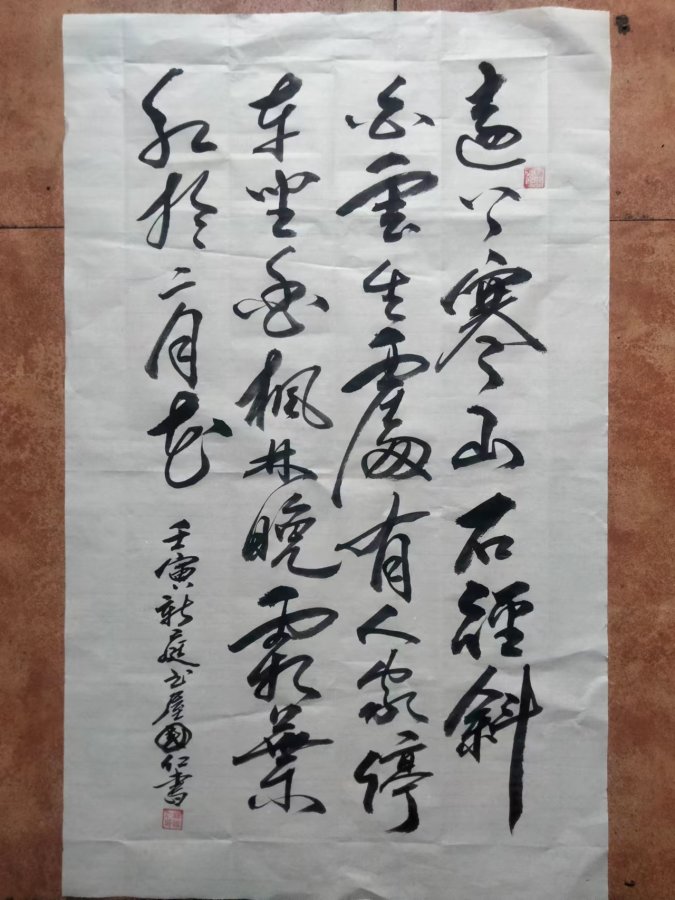 遠上寒山石徑斜
白雲生處有人家停
車坐愛楓林晚霜葉
紅於二月花
壬寅新庭书屋國仁書